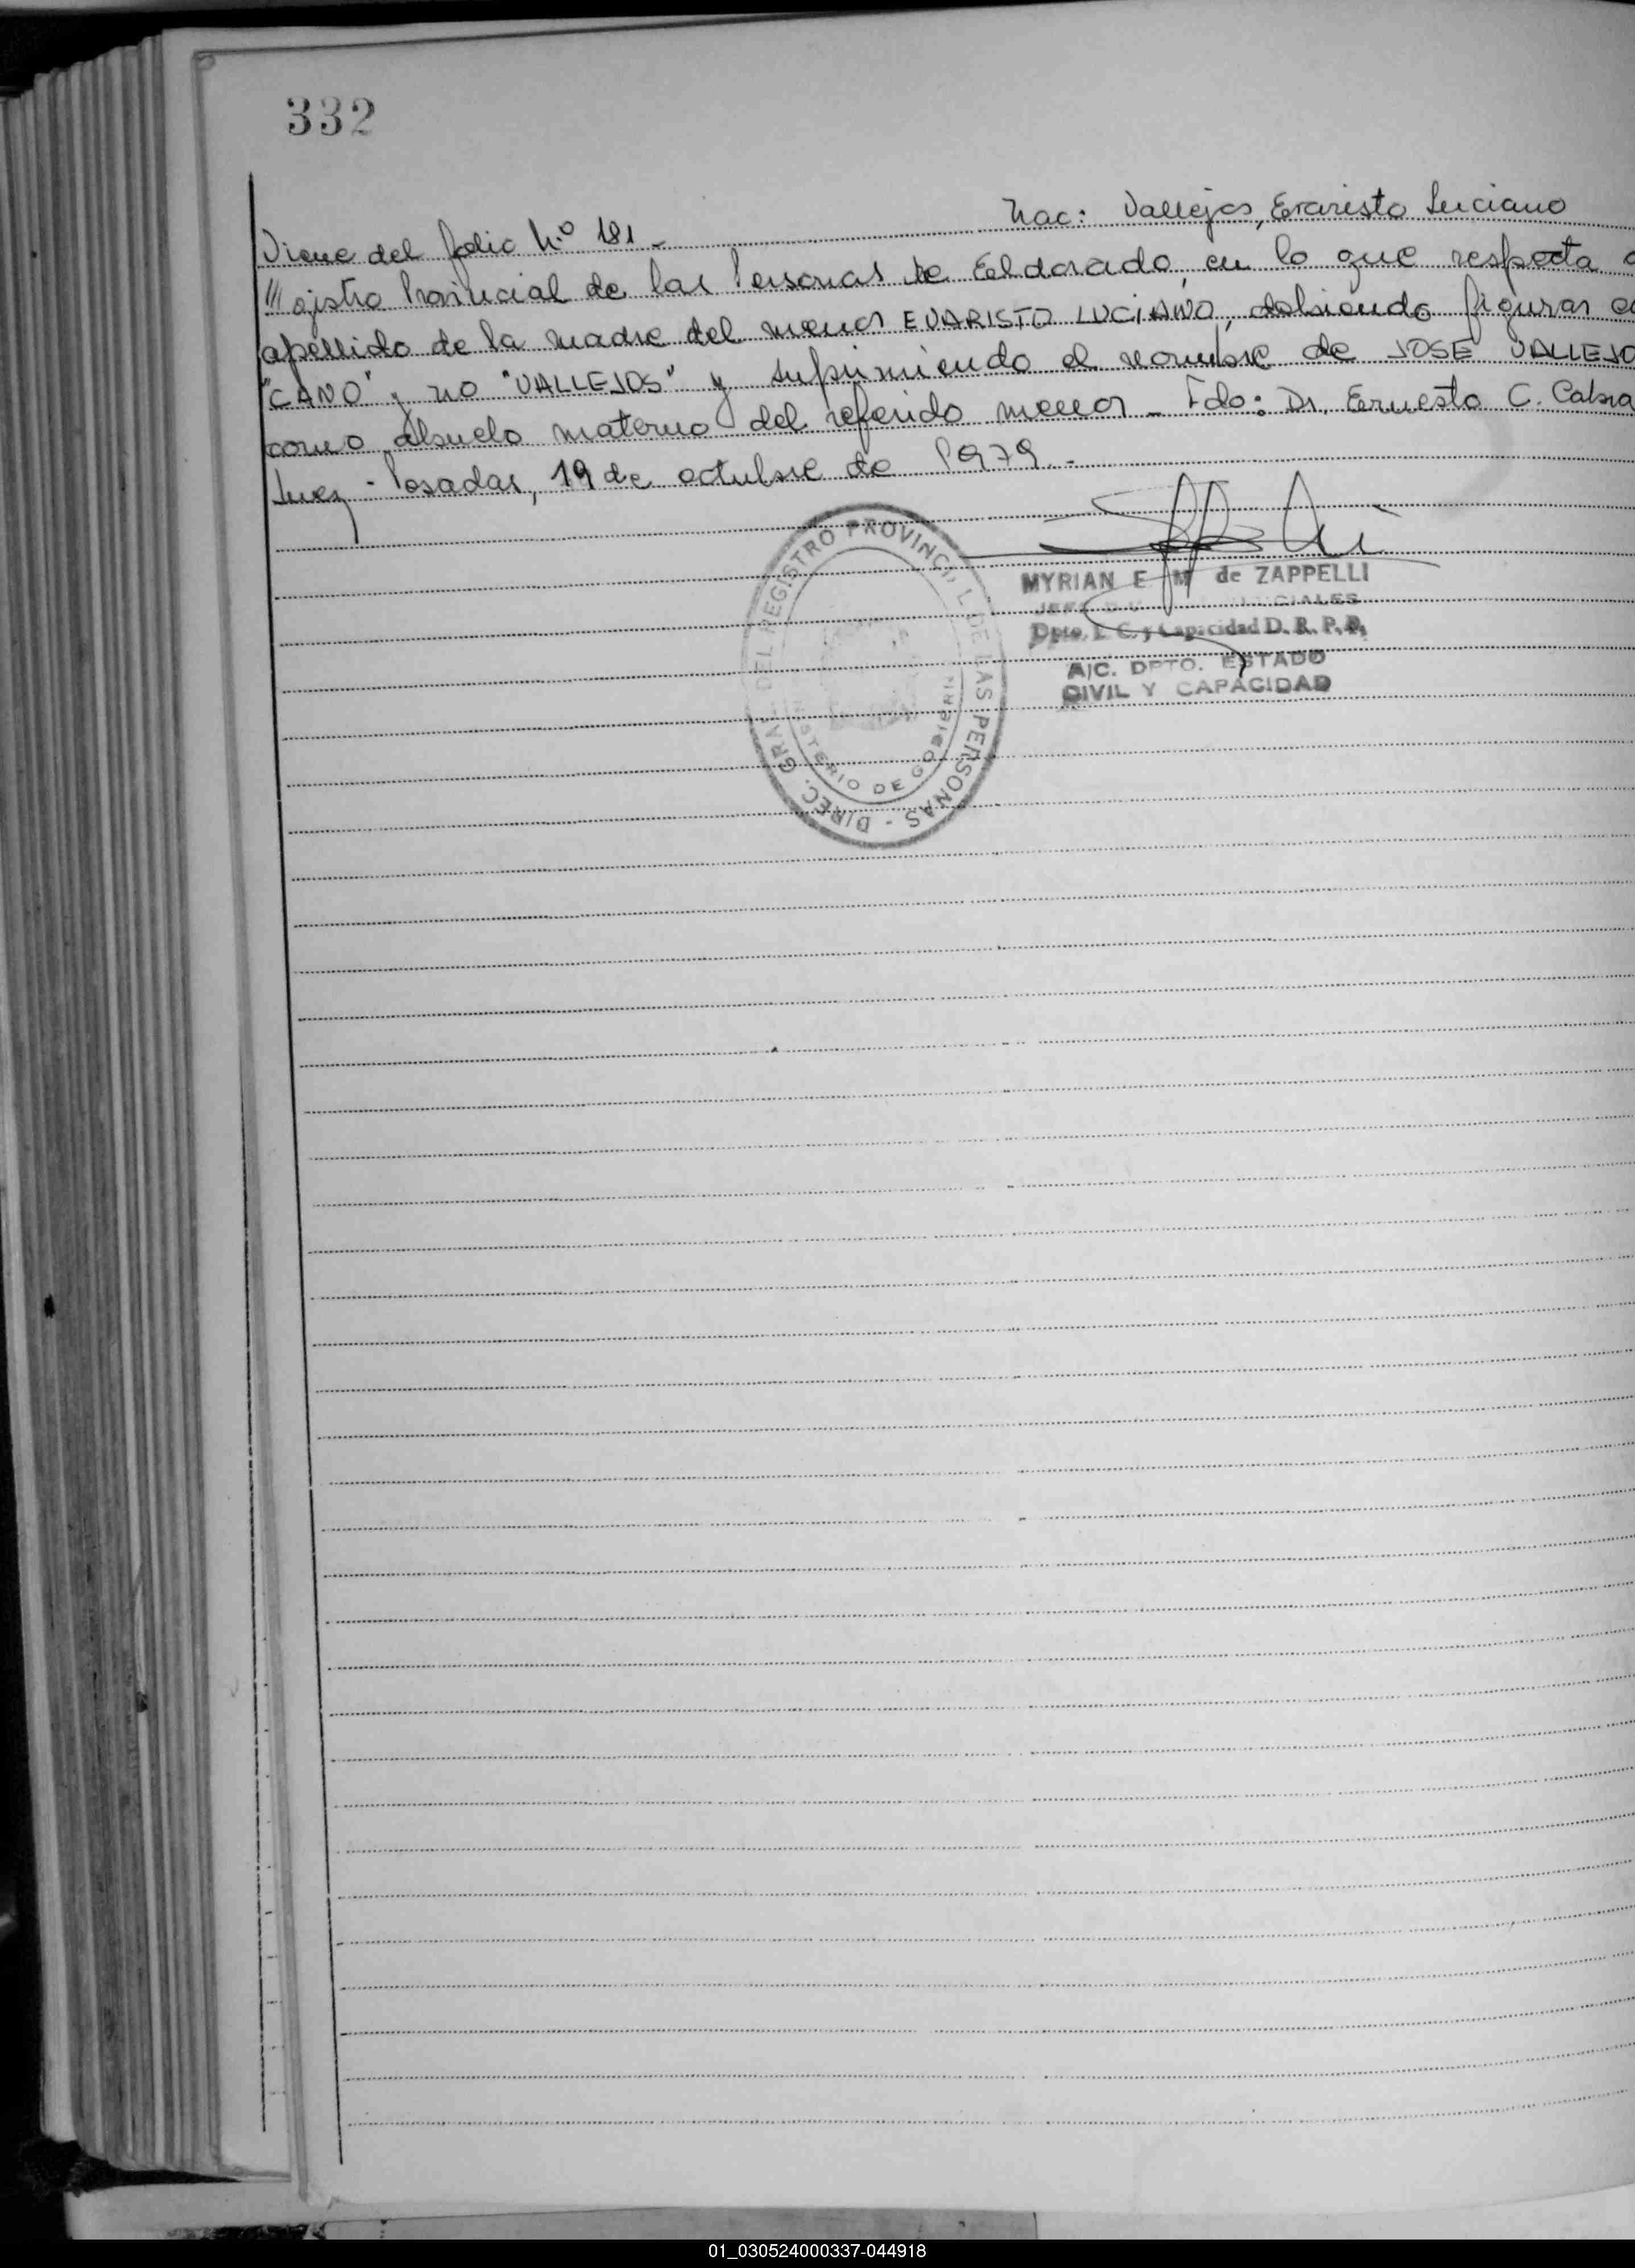 332
Nac: Vallejos, Evaristo Luciano
Viene del folio Nº 181 -
///gistro Provincial de las Personas de Eeldorado, en lo que respecta a
apellido de la madre del menor EVARISTO LUCIANO, debiendo figurar co
"CANO" y no "VALLEJOS" y suprimiendo el nombre de JOSE VALLEJO
como abuelo materno del referido menor - Fdo: Dr. Ernesto C. Cabra
Juez - Posadas, 19 de octubre de 1979 -
DIREC. GRAL. DEL REGISTRO PROVINCIAL DE LAS PERSONAS -
MINISTERIO DE GOBIERN
MYRIAN E M de ZAPPELLI
Dpto. E. C. y Capacidad D. R. P. P.
A/C. DPTO. ESTADO
CIVIL Y CAPACIDAD
01_030524000337-044918